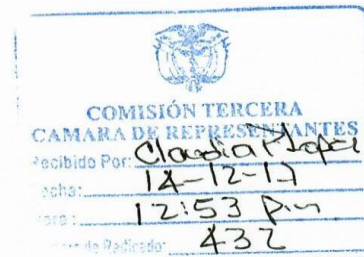 COMISIÓN TERCERA
CAMARA DE REPRESENTANTES
Recibido Por: Claudia P Lopez
Fecha: 14-12-17
Hora: 12:53 pm
de Radicado: 432